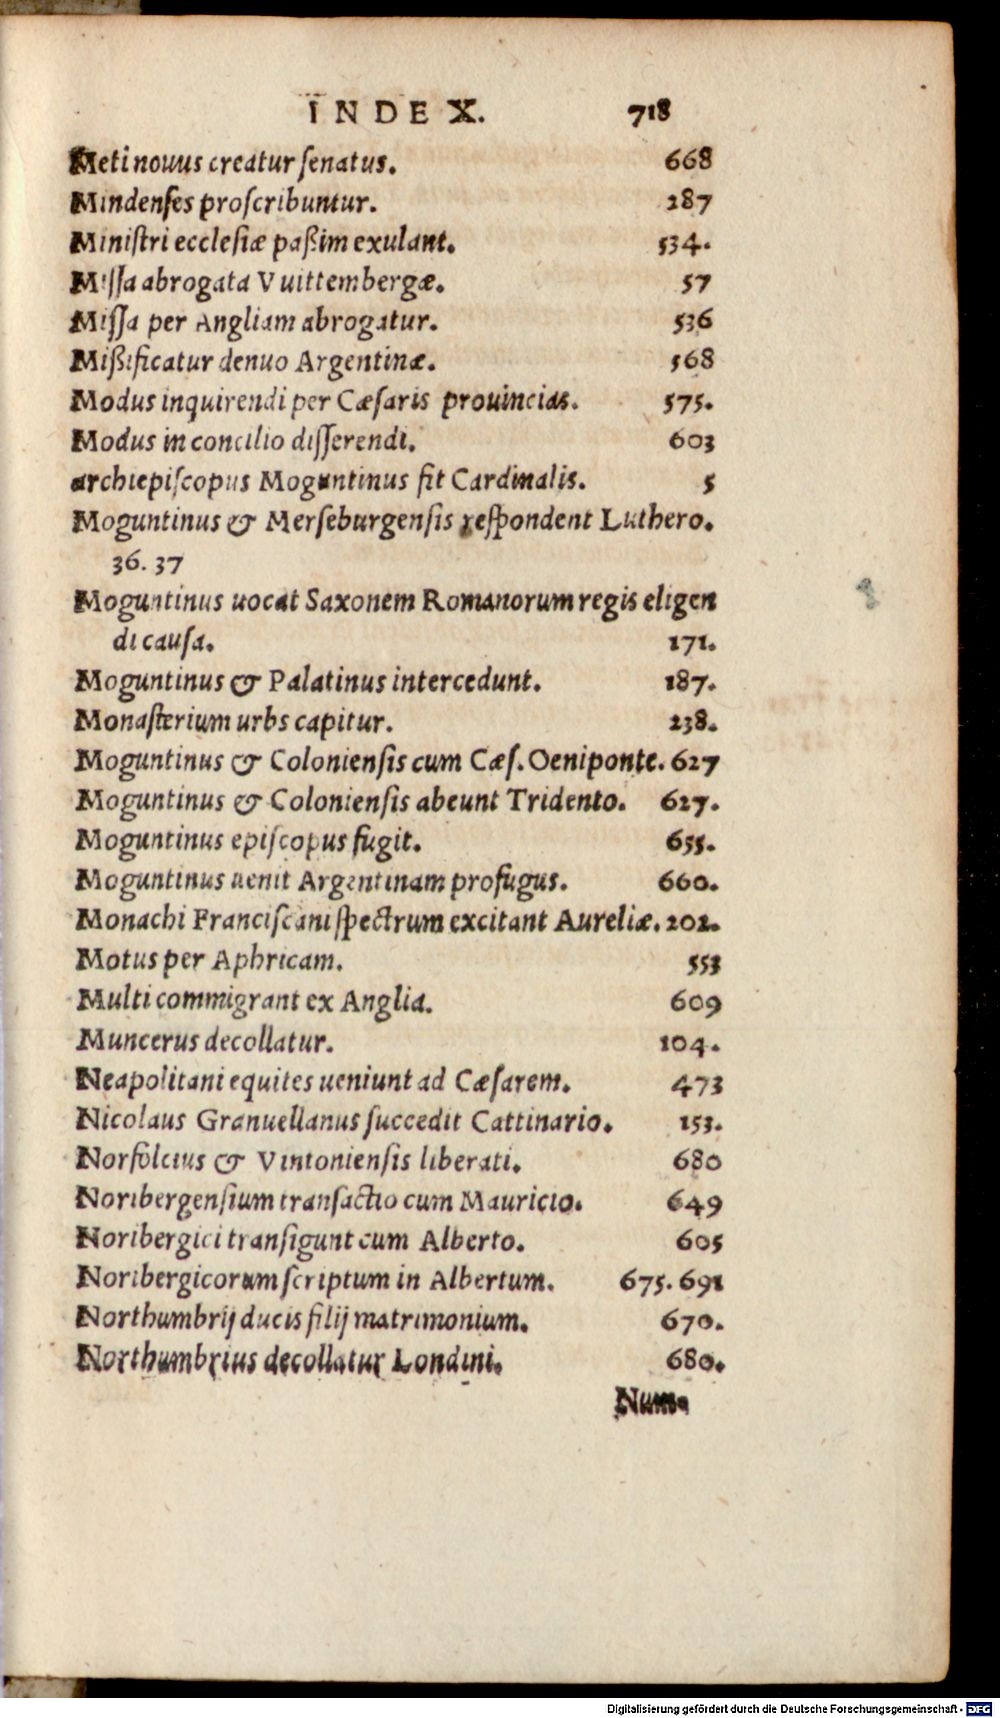 INDEX. 718
Meti nouus creatur ſenatus. 668
Mindenſes proſcribuntur. 287
Miniſtri eccleſiæ paßim exulant. 534.
Miſſa abrogata Vuittembergæ. 57
Miſſa per Angliam abrogatur. 536
Mißificatur denuo Argentinæ. 568
Modus inquirendi per Cæſaris prouincias. 575.
Modus in concilio diſſerendi. 603
archiepiſcopus Moguntinus fit Cardinalis. 5
Moguntinus & Merſeburgenſis reſpondent Luthero.
36. 37
Moguntinus uocat Saxonem Romanorum regis eligen
di cauſa. 171.
Moguntinus & Palatinus intercedunt. 187.
Monaſterium urbs capitur. 238.
Moguntinus & Colonienſis cum Cæſ. Oeniponte. 627
Moguntinus & Colonienſis abeunt Tridento. 627.
Moguntinus epiſcopus fugit. 655.
Moguntinus uenit Argentinam profugus. 660.
Monachi Franciſcani ſpectrum excitant Aureliæ. 202.
Motus per Aphricam. 553
Multi commigrant ex Anglia. 609
Muncerus decollatur. 104.
Neapolitani equites ueniunt ad Cæſarem. 473
Nicolaus Granuellanus ſuccedit Cattinario. 153.
Norfolcius & Vintonienſis liberati. 680
Noribergenſium tranſactio cum Mauricio. 649
Noribergici tranſigunt cum Alberto. 605
Noribergicorum ſcriptum in Albertum. 675. 691
Northumbrij ducis filij matrimonium. 670.
Northumbrius decollatur Londini. 680.
Num-
Digitalisierung gefördert durch die Deutsche Forschungsgemeinschaft - DFG